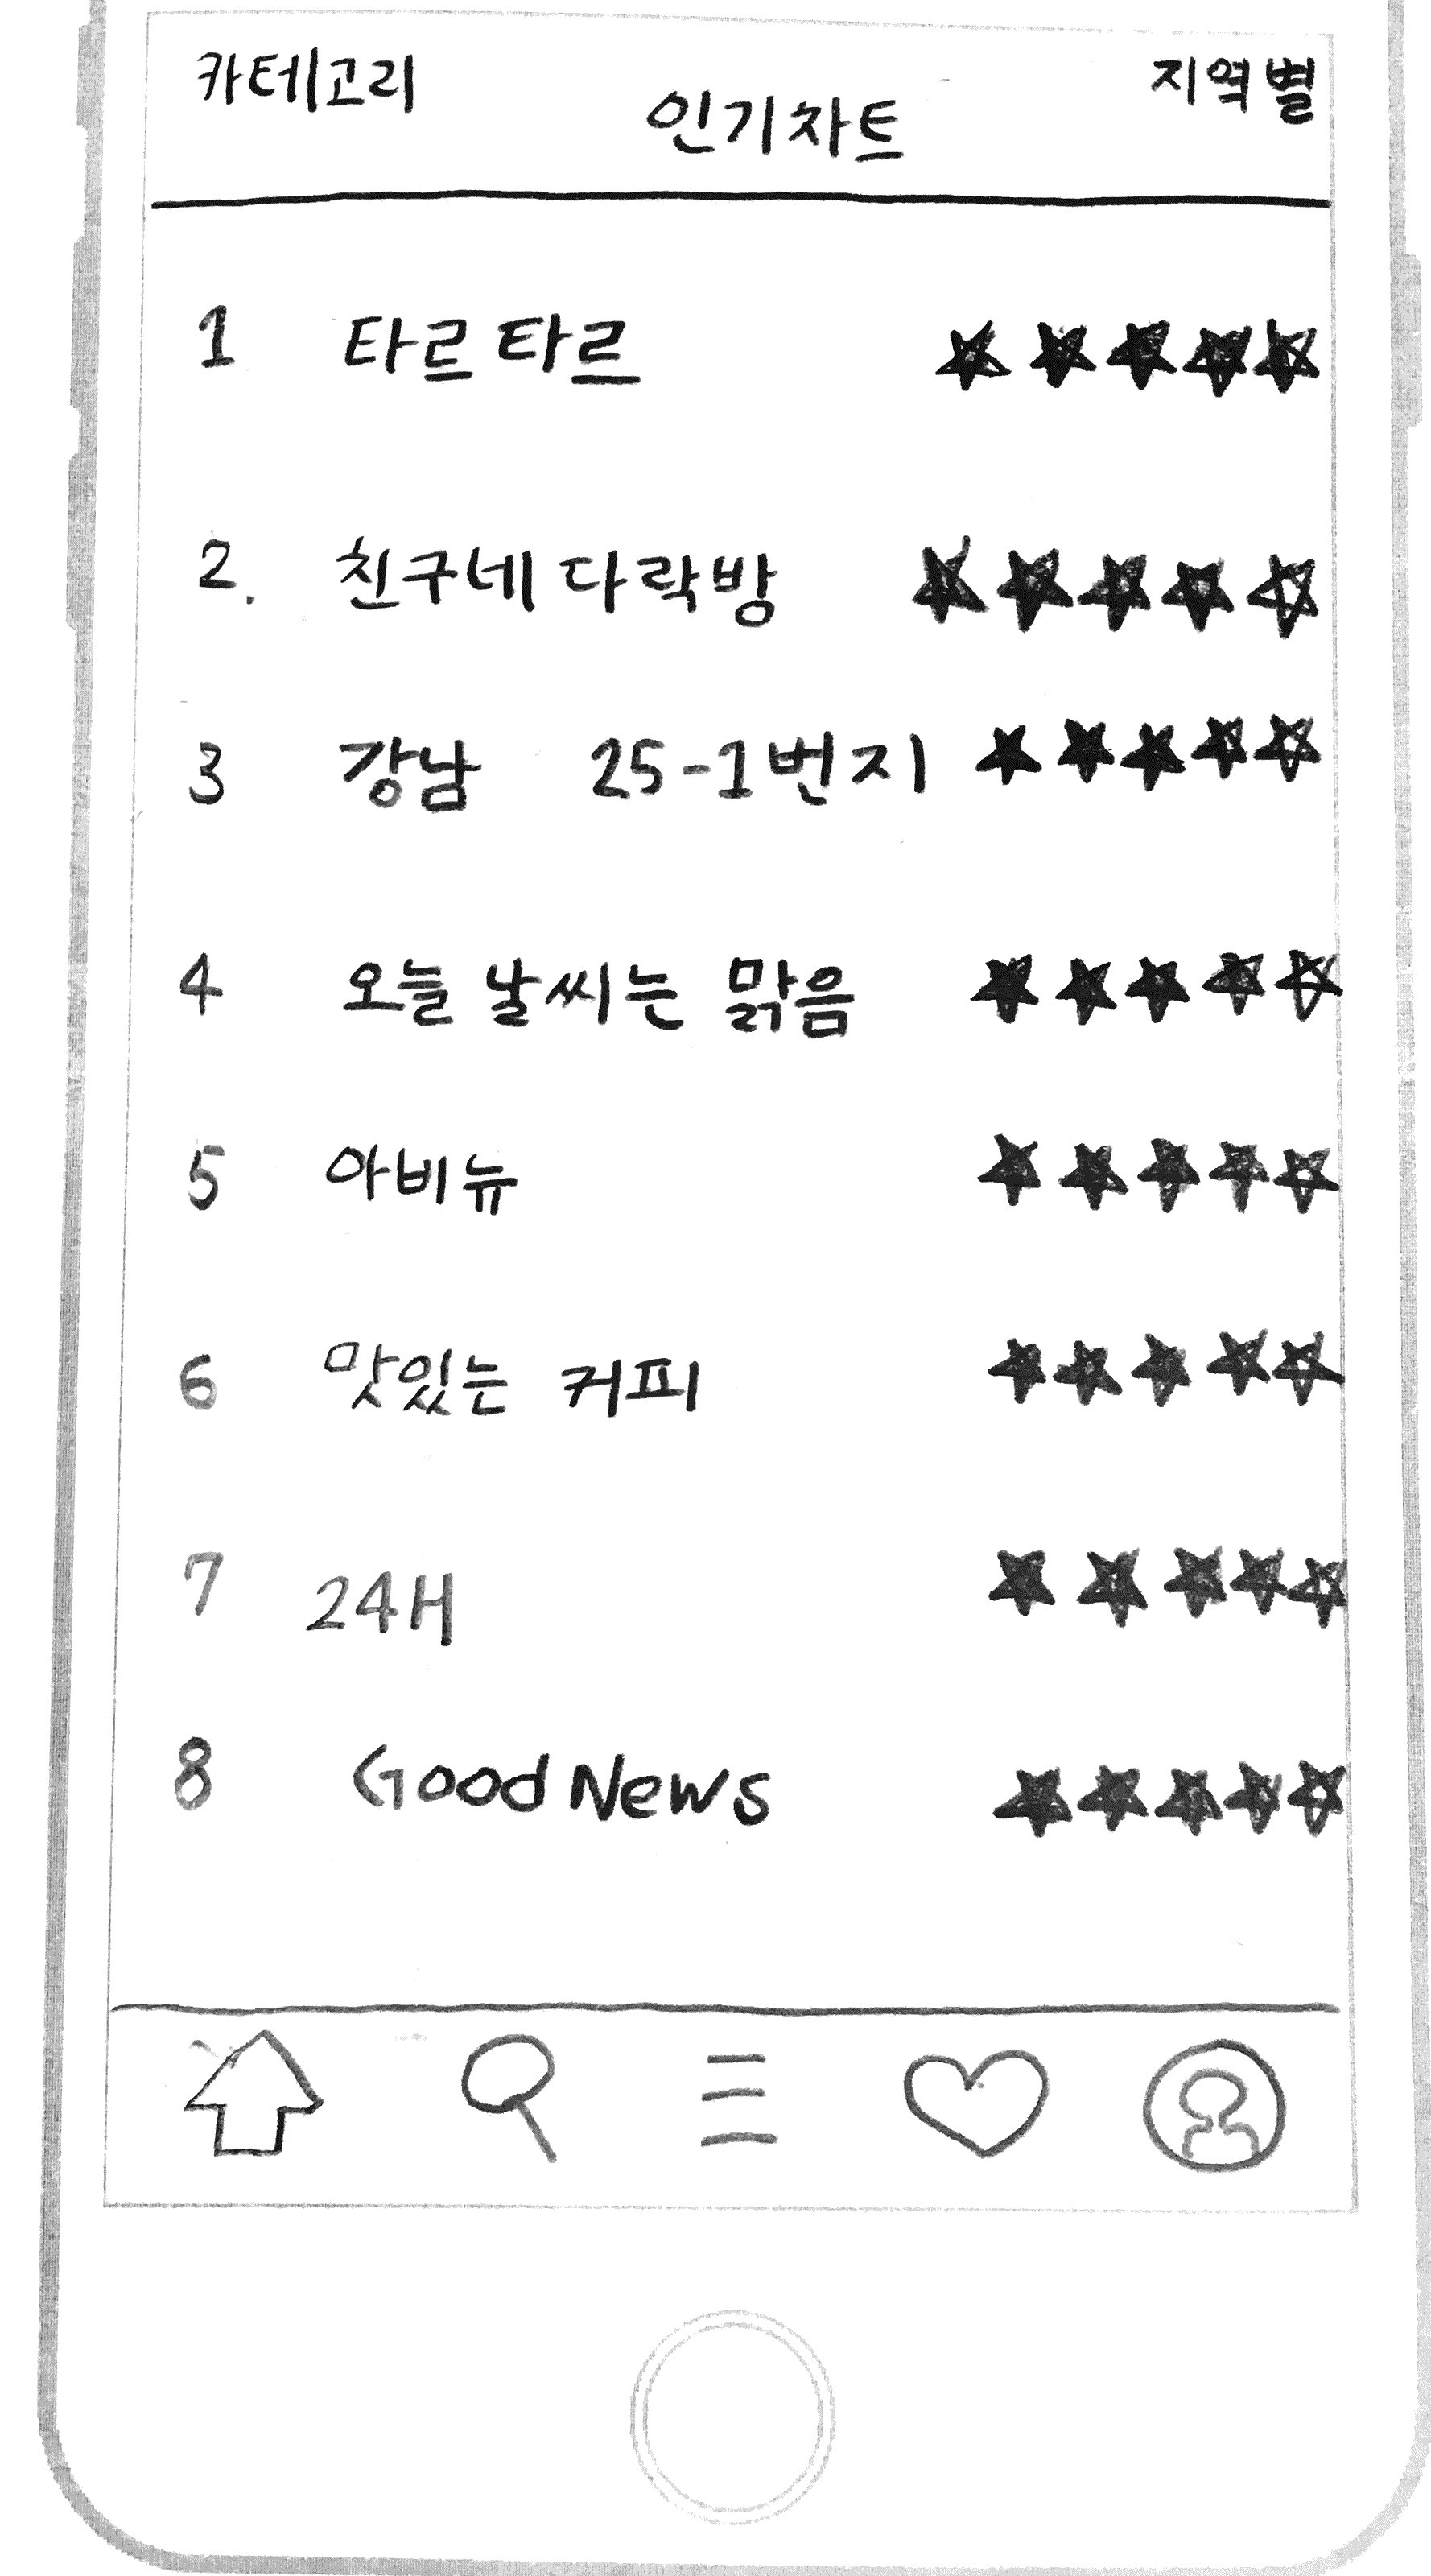 카테고리 인기차트 지역별
1 타르타르
2. 친구네 다락방
3 강남 25-1번지
4 오늘 날씨는 맑음
5 아비뉴
6 맛있는 커피
7 24H
8 Good News